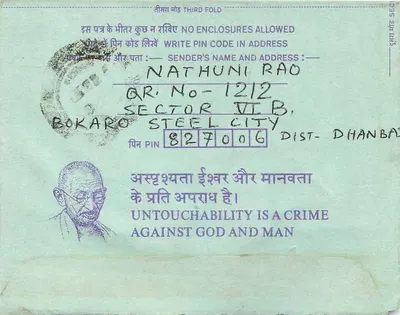 तीसरा मोड़ THIRD FOLD
इस पत्र के भीतर कुछ न रखिए NO ENCLOSURES ALLOWED
पते में पिन कोड लिखें WRITE PIN CODE IN ADDRESS
नाम और पता :— SENDER'S NAME AND ADDRESS :—
NATHUNI RAO
QR. NO- 1212
SECTOR VI B.
BOKARO STEEL CITY
पिन PIN 827006 DIST- DHANBA
अस्पृश्यता ईश्वर और मानवता
के प्रति अपराध है।
UNTOUCHABILITY IS A CRIME
AGAINST GOD AND MAN